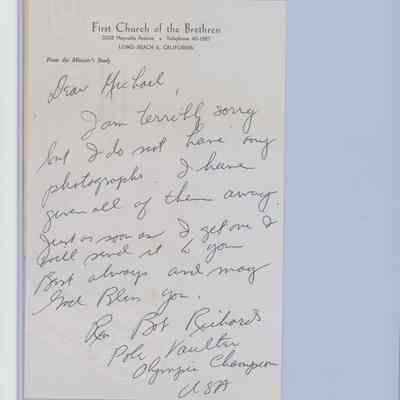 First Church of the Brethren
Telephone 40-1987
LONG BEACH 6, CALIFORNIA
From the Minister's Study
Dear Michael,
I am terribly sorry
but I do not have any
photographs. I have
given all of them away.
Just as soon as I get one I
will send it to you
Best always and may
God Bless you.
Rev Bob Richards
Pole Vaulter
Olympic Champion
USA